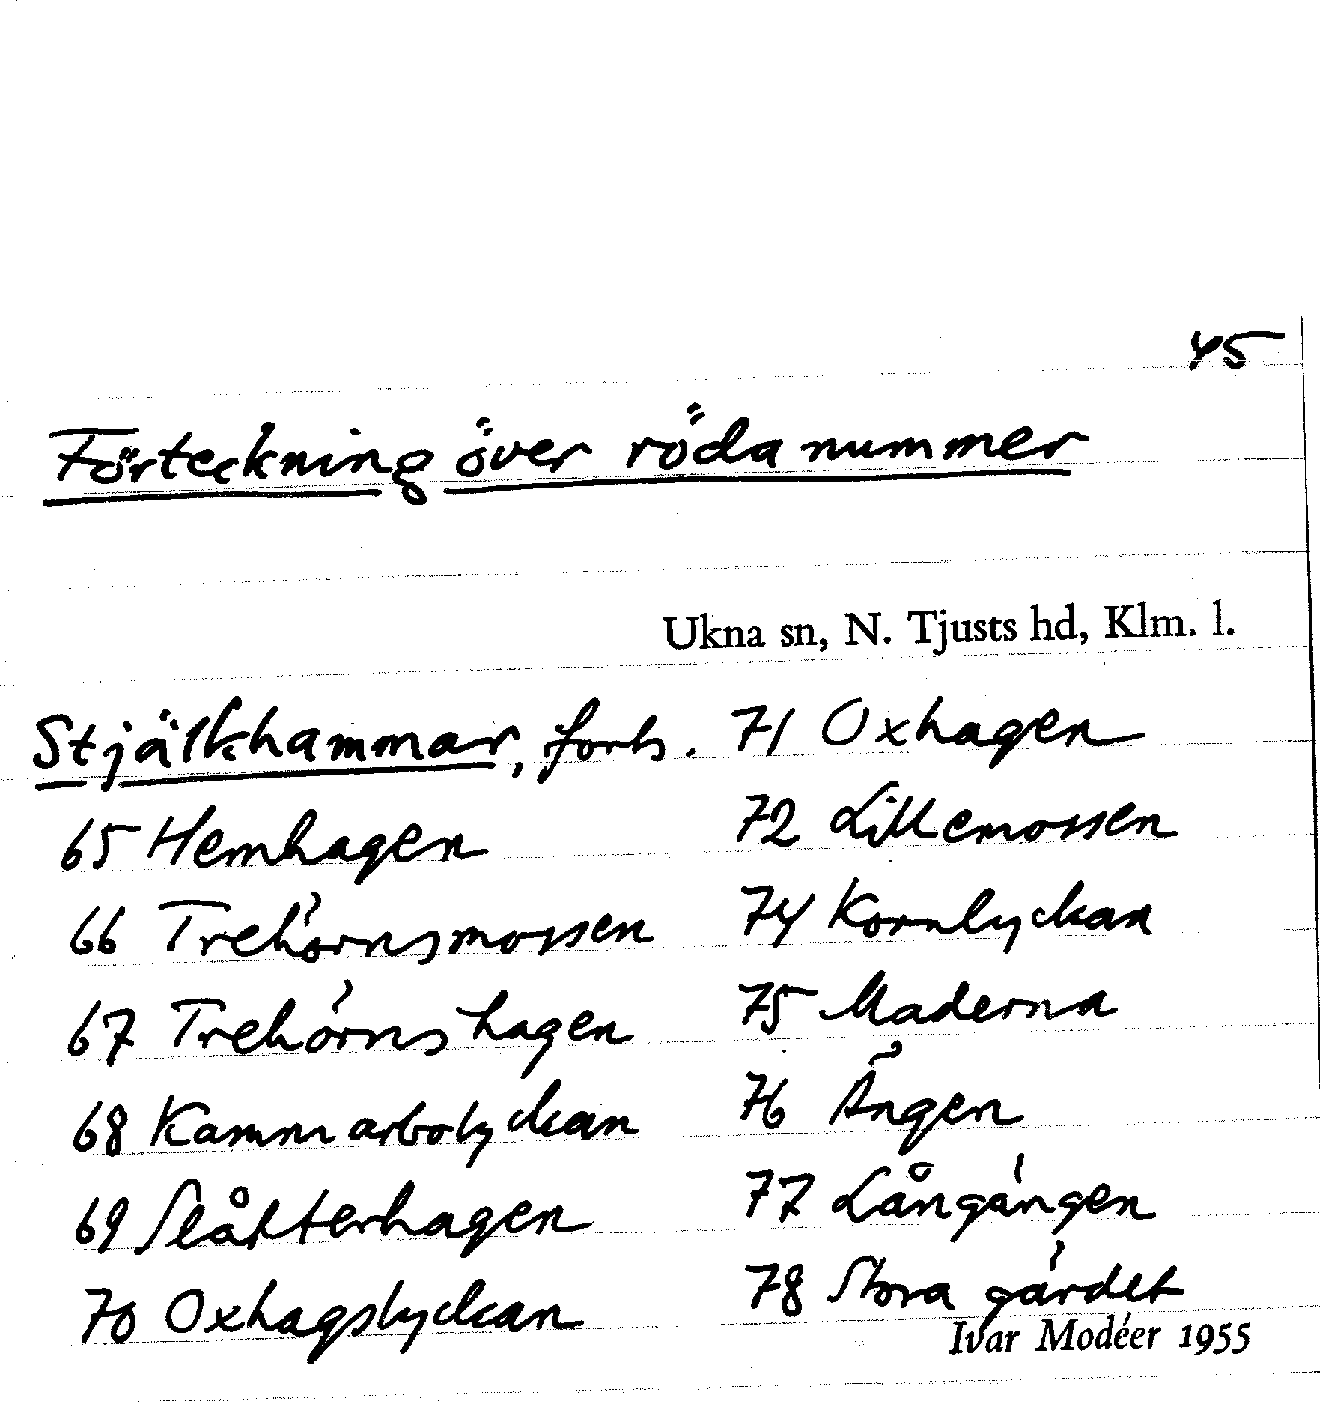 45
Förteckning över röda nummer
Ukna sn, N. Tjusts hd, Klm. l.
Stjälkhammar, forts.
65 Hemhagen
66 Trehörnsmossen
67 Trehörnshagen
68 Kammarbolyckan
69 Slåtterhagen
70 Oxhagslyckan
71 Oxhagen
72 Lillemossen
74 Kornlyckan
75 Maderna
76 Ängen
77 Långängen
78 Stora gärdet
Ivar Modéer 1955